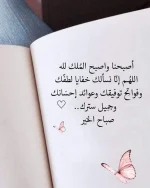 أصبحنا واصبح المُلك لله
اللهُم إنّا نسألك خفايا لطفك
وفواتح توفيقك وعوائد إحسَانك
وجميل سترك..
صباح الخير